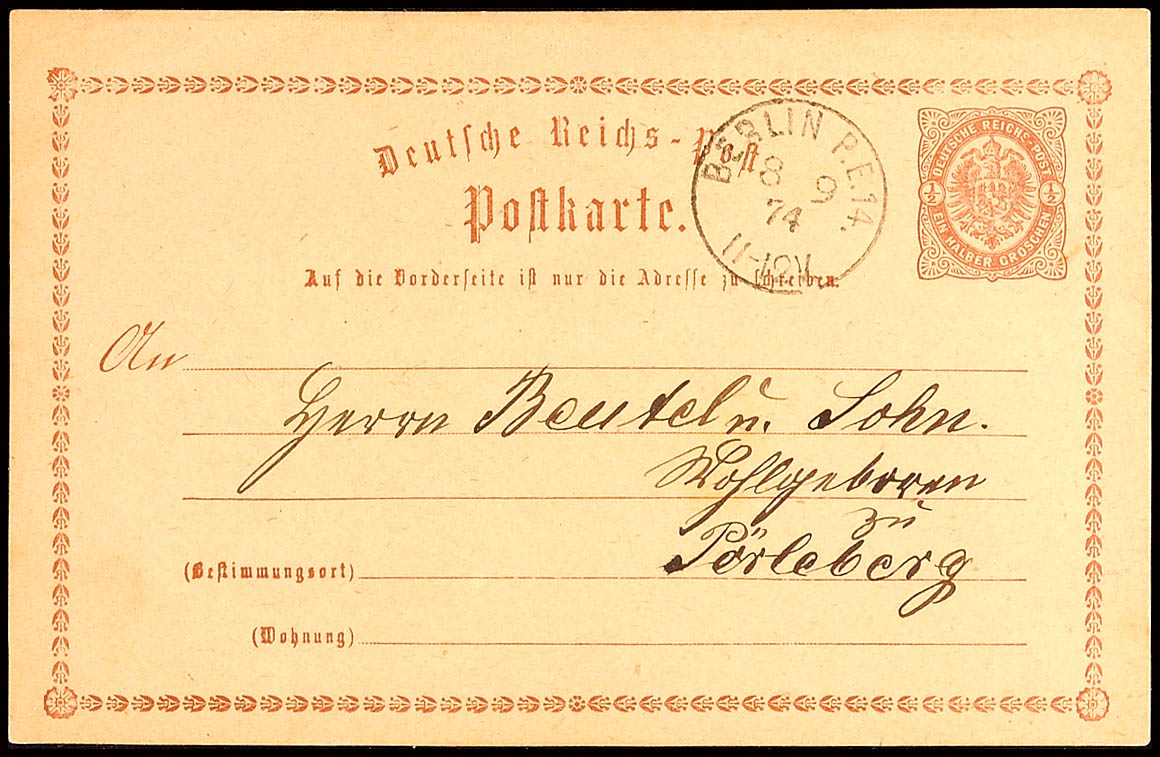 Deutsche Reichs-Post
Postkarte.
BERLIN P.E.14.
8 9
74
11-12V
DEUTSCHE REICHS-POST
½ ½
EIN HALBER GROSCHEN
Auf die Vorderseite ist nur die Adresse zu schreiben.
An
Herrn Beutel u. Sohn.
Wohlgeboren
zu
Pörleberg
(Bestimmungsort)
(Wohnung)